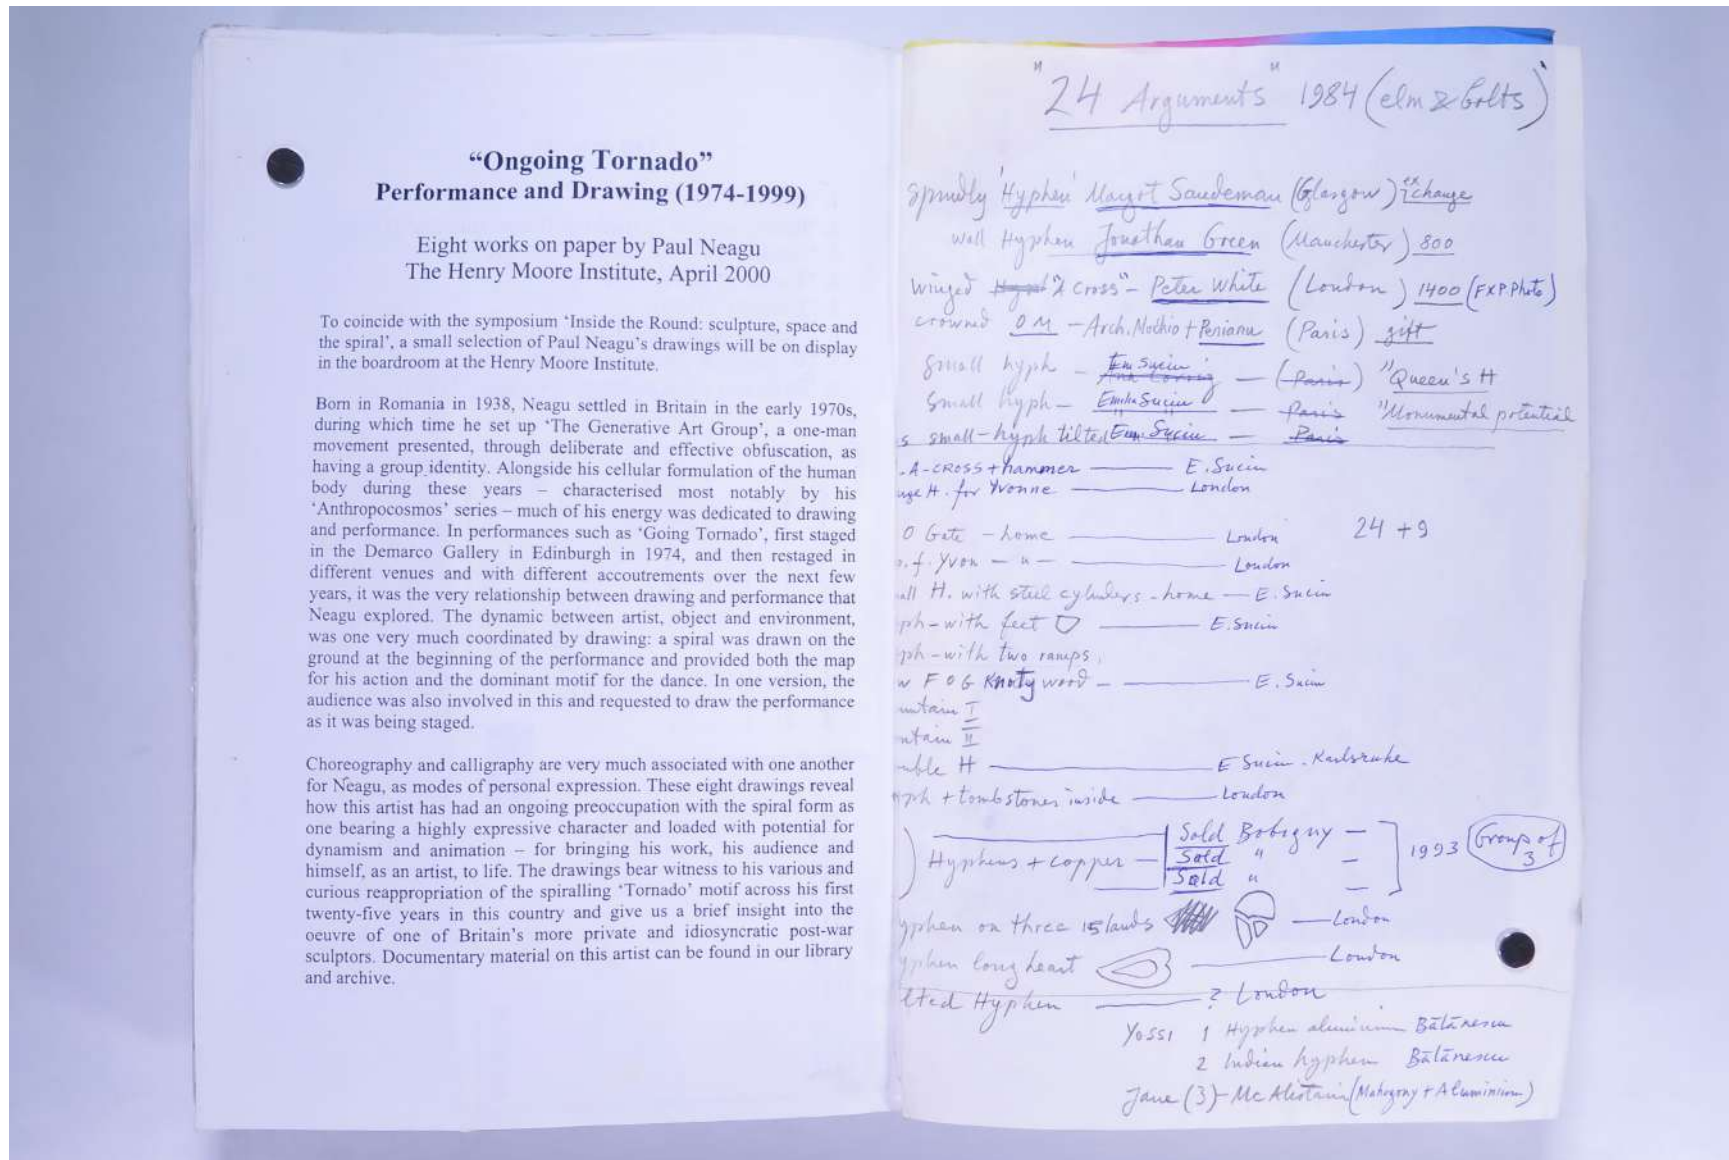 “Ongoing Tornado”
Performance and Drawing (1974-1999)
Eight works on paper by Paul Neagu
The Henry Moore Institute, April 2000
To coincide with the symposium ‘Inside the Round: sculpture, space and
the spiral’, a small selection of Paul Neagu’s drawings will be on display
in the boardroom at the Henry Moore Institute.
Born in Romania in 1938, Neagu settled in Britain in the early 1970s,
during which time he set up ‘The Generative Art Group’, a one-man
movement presented, through deliberate and effective obfuscation, as
having a group identity. Alongside his cellular formulation of the human
body during these years – characterised most notably by his
‘Anthropocosmos’ series – much of his energy was dedicated to drawing
and performance. In performances such as ‘Going Tornado’, first staged
in the Demarco Gallery in Edinburgh in 1974, and then restaged in
different venues and with different accoutrements over the next few
years, it was the very relationship between drawing and performance that
Neagu explored. The dynamic between artist, object and environment,
was one very much coordinated by drawing: a spiral was drawn on the
ground at the beginning of the performance and provided both the map
for his action and the dominant motif for the dance. In one version, the
audience was also involved in this and requested to draw the performance
as it was being staged.
Choreography and calligraphy are very much associated with one another
for Neagu, as modes of personal expression. These eight drawings reveal
how this artist has had an ongoing preoccupation with the spiral form as
one bearing a highly expressive character and loaded with potential for
dynamism and animation – for bringing his work, his audience and
himself, as an artist, to life. The drawings bear witness to his various and
curious reappropriation of the spiralling ‘Tornado’ motif across his first
twenty-five years in this country and give us a brief insight into the
oeuvre of one of Britain’s more private and idiosyncratic post-war
sculptors. Documentary material on this artist can be found in our library
and archive.
"24 Arguments" 1984 (elm & bolts)
'Hyphen' Margot Sandeman (Glasgow) exchange
wall Hyphen Jonathan Green (Manchester) 800
winged "A cross" - Peter White (London) 1400 (FXP.Photo)
crowned OM - Arch. + (Paris) gift
small hyph - Em Suciu — (Paris) "Queen's H
small hyph - Emilia Suciu — Paris "Monumental potential
s small-hyph tilted Em. Suciu — Paris
. A-CROSS + hammer — E. Suciu
uge H. for Yvonne — London
O Gate - home — London
.f. Yvon — " — — London
24 + 9
all H. with steel cylinders - home — E. Suciu
ph - with feet — E. Suciu
ph - with two ramps,
w F O G Knoty wood - — E. Suciu
untain I
ntain II
uble H — E Suciu - Karlsruhe
ph + tombstones inside — London
) Hyphens + copper — Sold Bobigny —
Sold " —
Sold " —
] 1993 Group of 3
yphen on three islands — London
yphen long heart — London
lted Hyphen — ? London
Yossi 1 Hyphen aluminium Bătănescu
2 Indian hyphen Bătănescu
Jane (3) - (Mahogony + Aluminium)